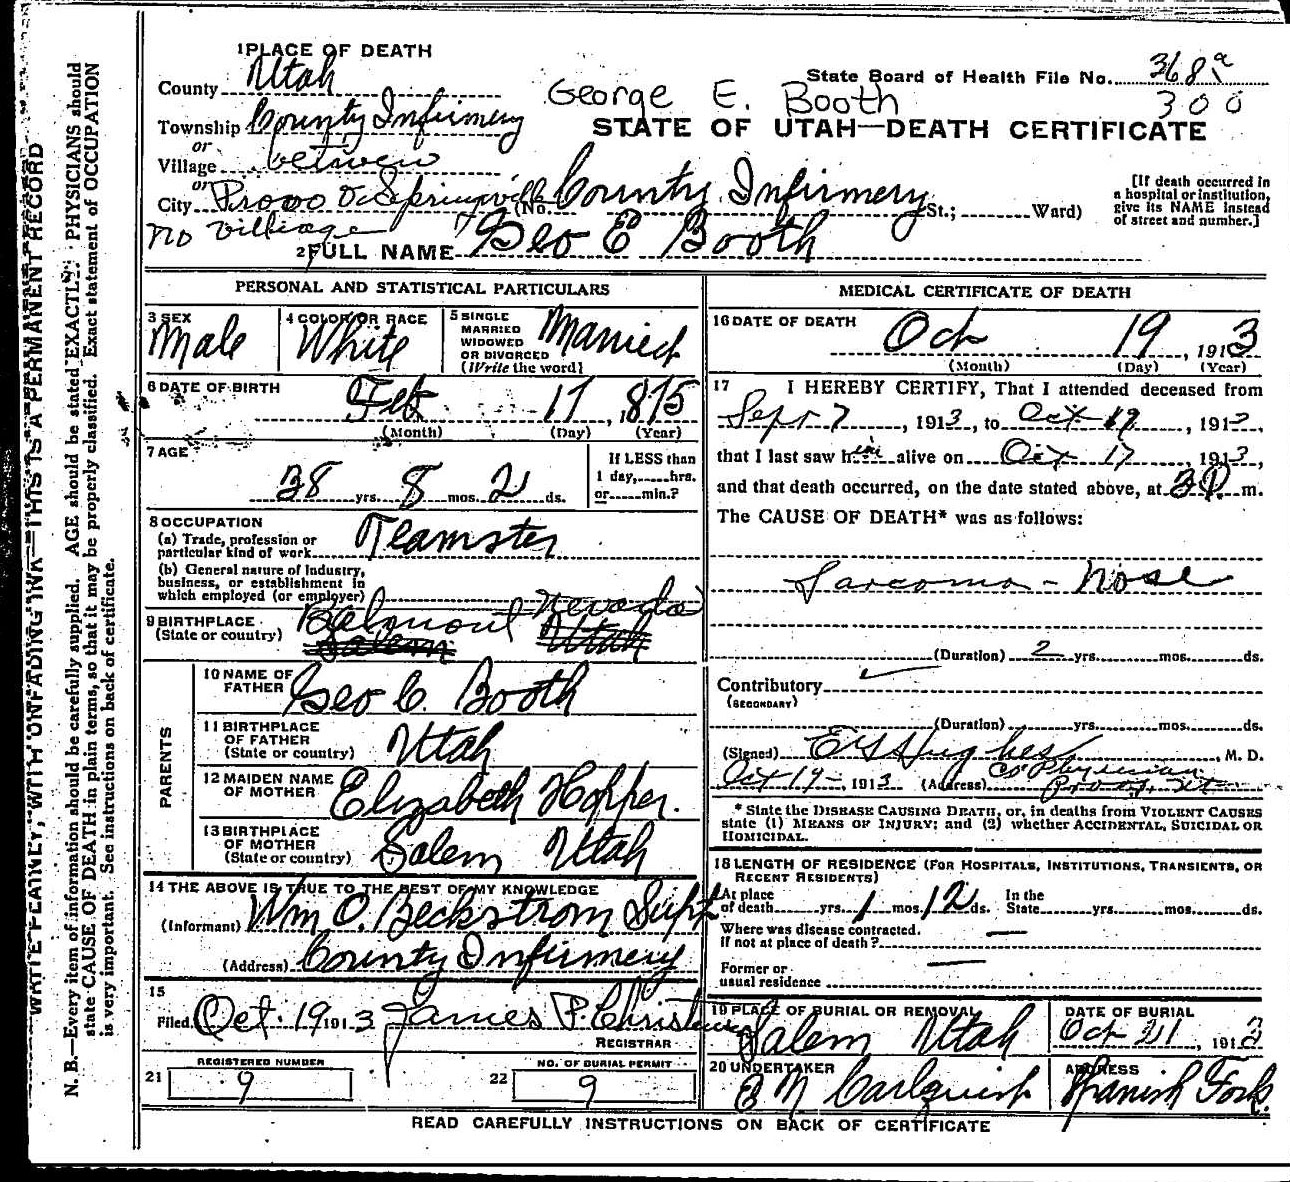 WRITE PLAINLY, WITH UNFADING INK—THIS IS A PERMANENT RECORD
N. B.—Every item of information should be carefully supplied. AGE should be stated EXACTLY. PHYSICIANS should
state CAUSE OF DEATH in plain terms, so that it may be properly classified. Exact statement of OCCUPATION
is very important. See instructions on back of certificate.
1 PLACE OF DEATH
County Utah
State Board of Health File No. 368a
George E. Booth 300
Township County Infirmery
or
STATE OF UTAH—DEATH CERTIFICATE
Village between
or
City Provo & Springville (No. County Infirmery St.; Ward)
[If death occurred in
a hospital or institution,
give its NAME instead
of street and number.]
no village
2 FULL NAME Geo E Booth
PERSONAL AND STATISTICAL PARTICULARS
3 SEX Male
4 COLOR OR RACE White
5 SINGLE
MARRIED
WIDOWED
OR DIVORCED
(Write the word)
Married
6 DATE OF BIRTH Feb 17, 1875
(Month) (Day) (Year)
7 AGE
38 yrs. 8 mos. 2 ds.
If LESS than
1 day, hrs.
or min.?
8 OCCUPATION
(a) Trade, profession or
particular kind of work Teamster
(b) General nature of Industry,
business, or establishment in
which employed (or employer)
9 BIRTHPLACE
(State or country)
Belmont Nevada
Salem Utah
PARENTS
10 NAME OF
FATHER Geo C. Booth
11 BIRTHPLACE
OF FATHER
(State or country) Utah
12 MAIDEN NAME
OF MOTHER Elizabeth Hopper.
13 BIRTHPLACE
OF MOTHER
(State or country) Salem Utah
14 THE ABOVE IS TRUE TO THE BEST OF MY KNOWLEDGE
(Informant) Wm O. Beckstrom Supt
(Address) County Infirmery
15
Filed Oct. 19 1913 James P. Christensen
REGISTRAR
REGISTERED NUMBER
21 9
NO. OF BURIAL PERMIT
22 9
MEDICAL CERTIFICATE OF DEATH
16 DATE OF DEATH
Oct 19, 1913
(Month) (Day) (Year)
17 I HEREBY CERTIFY, That I attended deceased from
Sept 7, 1913, to Oct 19, 1913,
that I last saw him alive on Oct 17, 1913,
and that death occurred, on the date stated above, at 3 P. m.
The CAUSE OF DEATH* was as follows:
Sarcoma - Nose
(Duration) 2 yrs. mos. ds.
Contributory
(SECONDARY)
(Duration) yrs. mos. ds.
(Signed) Hughes, M. D.
Oct 19- 1913 (Address) Co Physician
Provo, Ut
* State the DISEASE CAUSING DEATH, or, in deaths from VIOLENT CAUSES
state (1) MEANS OF INJURY; and (2) whether ACCIDENTAL, SUICIDAL OR
HOMICIDAL.
18 LENGTH OF RESIDENCE (FOR HOSPITALS, INSTITUTIONS, TRANSIENTS, OR
RECENT RESIDENTS)
At place
of death yrs. 1 mos. 12 ds.
In the
State yrs. mos. ds.
Where was disease contracted.
if not at place of death?
Former or
usual residence
19 PLACE OF BURIAL OR REMOVAL
Salem Utah
DATE OF BURIAL
Oct 21, 1913
20 UNDERTAKER
E M Carlquist
ADDRESS
Spanish Fork.
READ CAREFULLY INSTRUCTIONS ON BACK OF CERTIFICATE